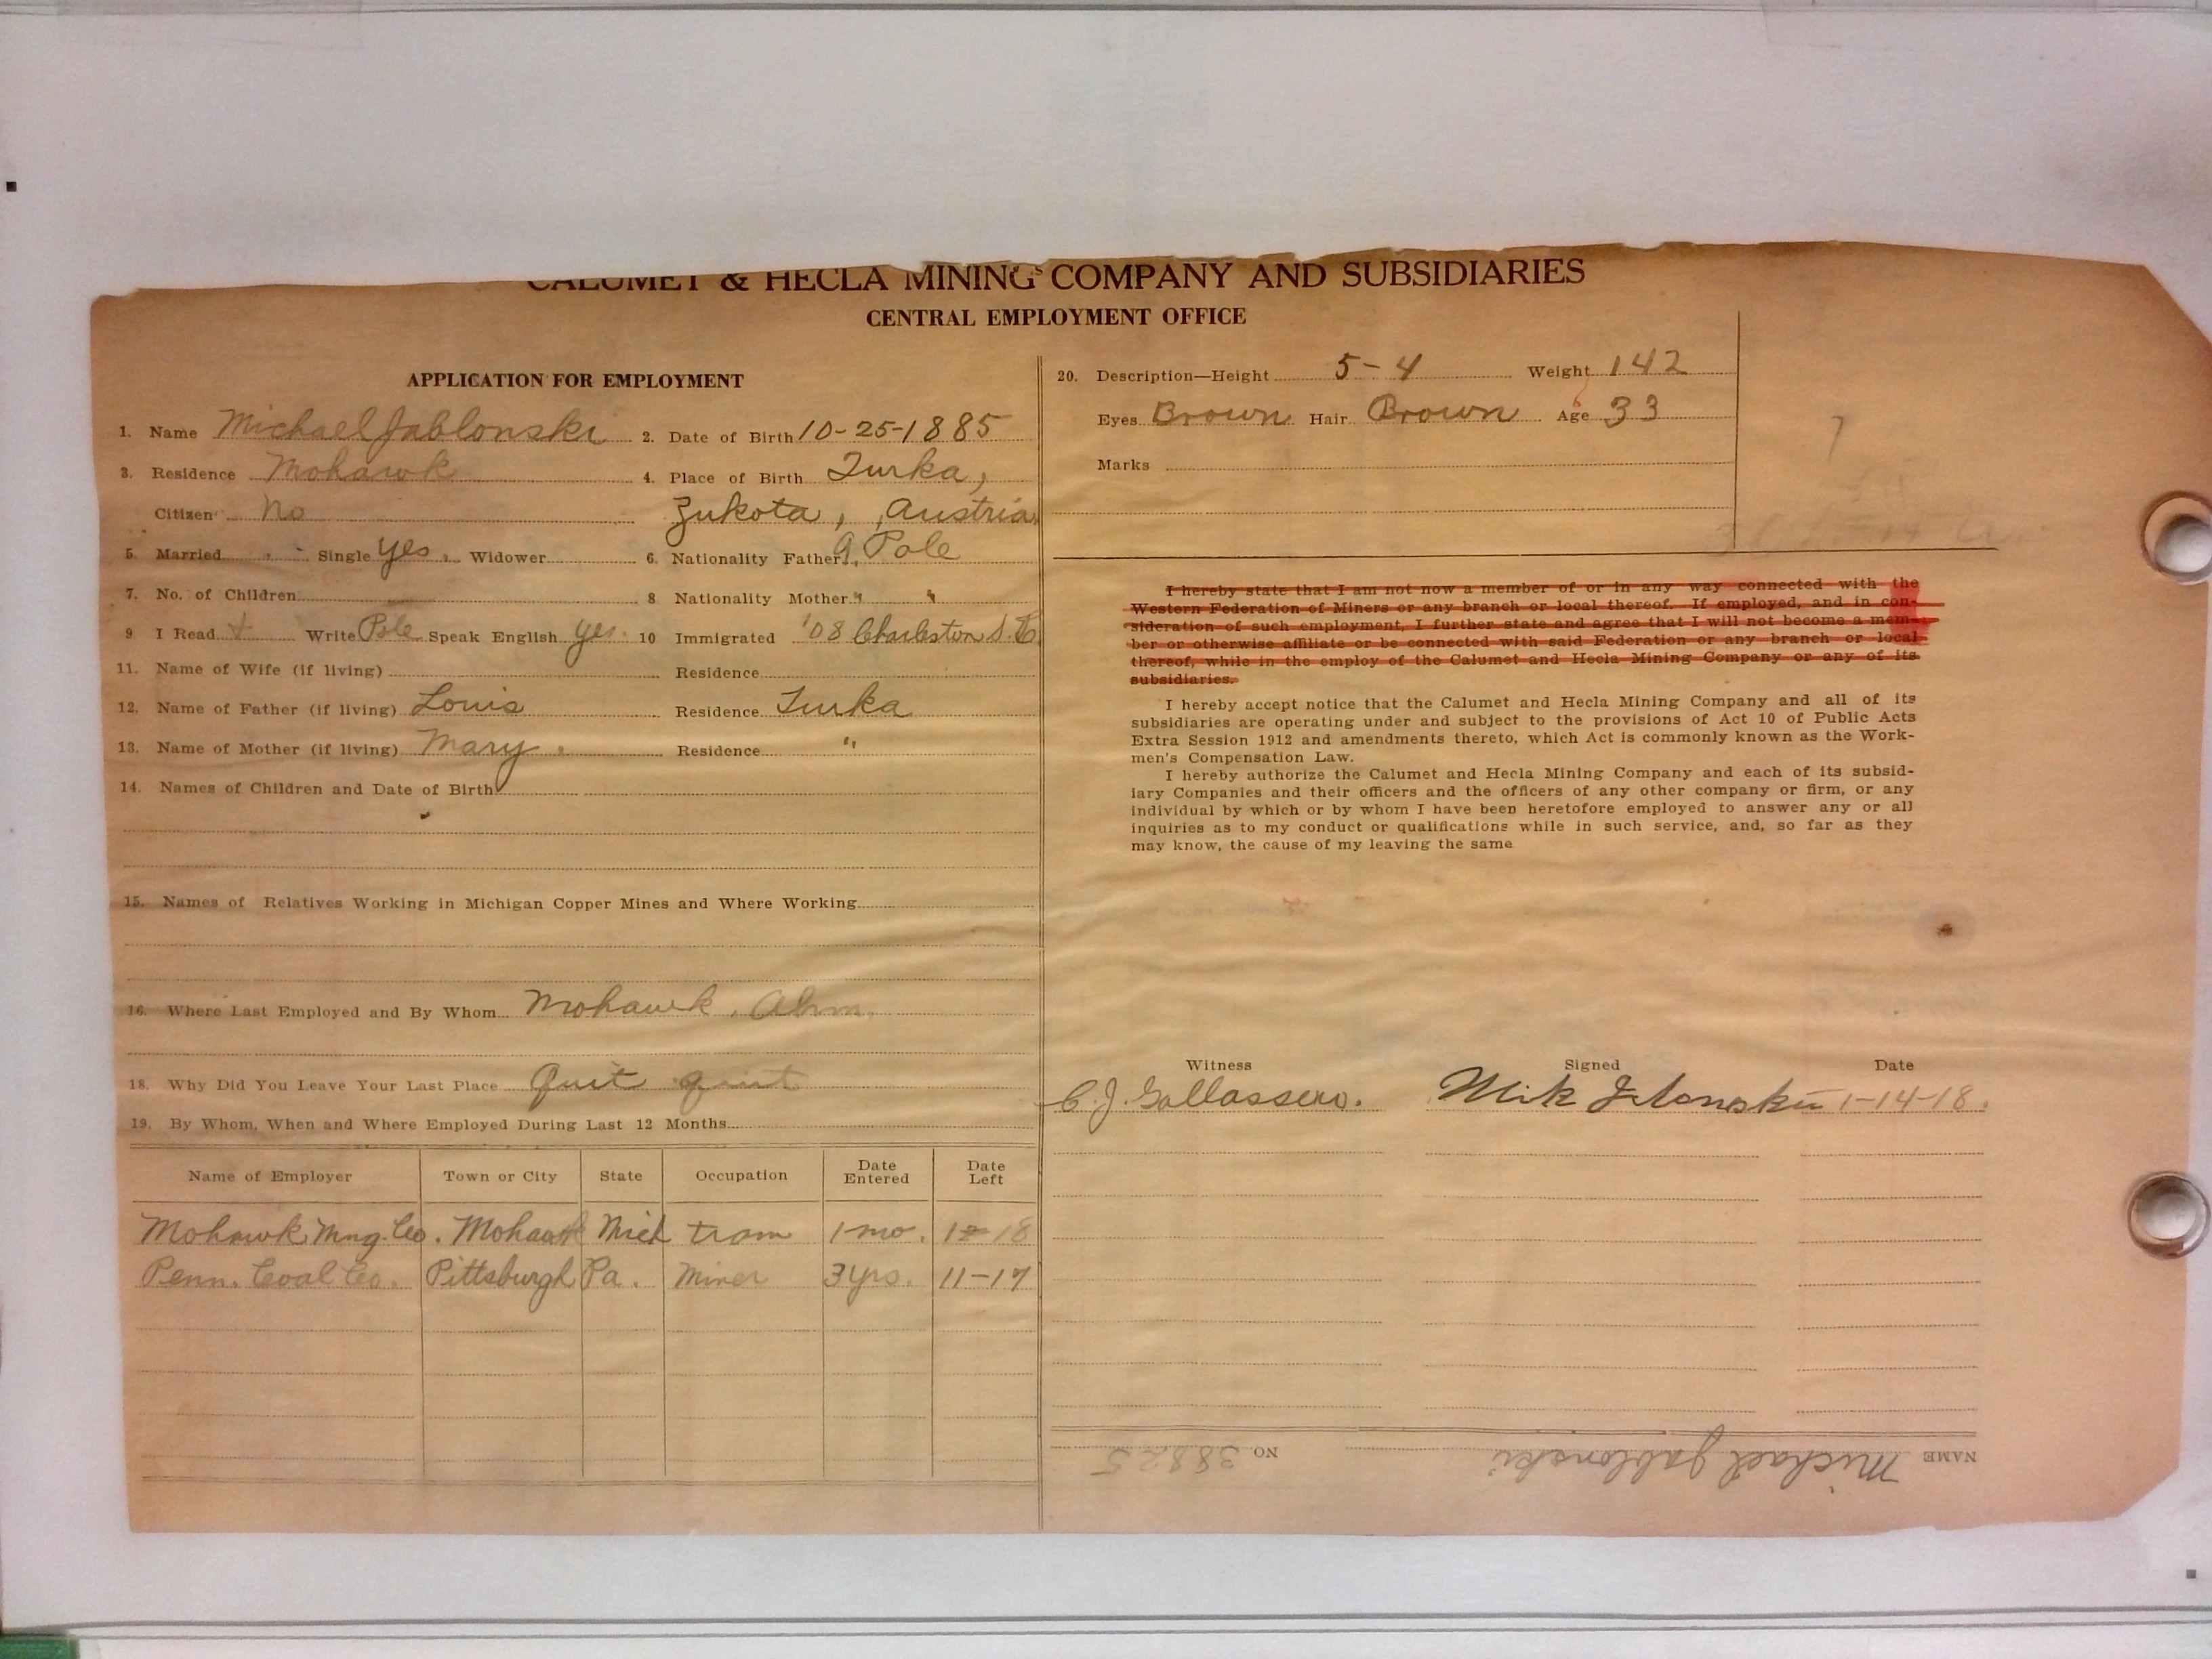 CALUMET & HECLA MINING COMPANY AND SUBSIDIARIES
CENTRAL EMPLOYMENT OFFICE
APPLICATION FOR EMPLOYMENT
1. Name Michael Jablonski 2. Date of Birth 10-25-1885
3. Residence Mohawk 4. Place of Birth Turka,
Citizen No Zukota, Austria
5. Married Single yes Widower 6. Nationality Father a Pole
7. No. of Children 8 Nationality Mother " "
9 I Read + Write Pole Speak English yes. 10 Immigrated '08 Charleston S. C.
11. Name of Wife (if living) Residence
12. Name of Father (if living) Louis Residence Turka
13. Name of Mother (if living) Mary Residence "
14. Names of Children and Date of Birth
15. Names of Relatives Working in Michigan Copper Mines and Where Working
16. Where Last Employed and By Whom Mohawk
18. Why Did You Leave Your Last Place Quit quit
19. By Whom, When and Where Employed During Last 12 Months
Name of Employer Town or City State Occupation Date Entered Date Left
Mohawk Mng. Co. Mohawk Mich tram 1-mo. 18
Penn. Coal Co. Pittsburgh Pa. Miner 3 yrs. 11-17
20. Description—Height 5-4 Weight 142
Eyes Brown Hair Brown Age 33
Marks
I hereby state that I am not now a member of or in any way connected with the
Western Federation of Miners or any branch or local thereof. If employed, and in con-
sideration of such employment, I further state and agree that I will not become a mem-
ber or otherwise affiliate or be connected with said Federation or any branch or local
thereof, while in the employ of the Calumet and Hecla Mining Company or any of its
subsidiaries.
I hereby accept notice that the Calumet and Hecla Mining Company and all of its
subsidiaries are operating under and subject to the provisions of Act 10 of Public Acts
Extra Session 1912 and amendments thereto, which Act is commonly known as the Work-
men's Compensation Law.
I hereby authorize the Calumet and Hecla Mining Company and each of its subsid-
iary Companies and their officers and the officers of any other company or firm, or any
individual by which or by whom I have been heretofore employed to answer any or all
inquiries as to my conduct or qualifications while in such service, and, so far as they
may know, the cause of my leaving the same
Witness Signed Date
C. J. Mik 1-14-18.
NAME Michael Jablonski NO 38825